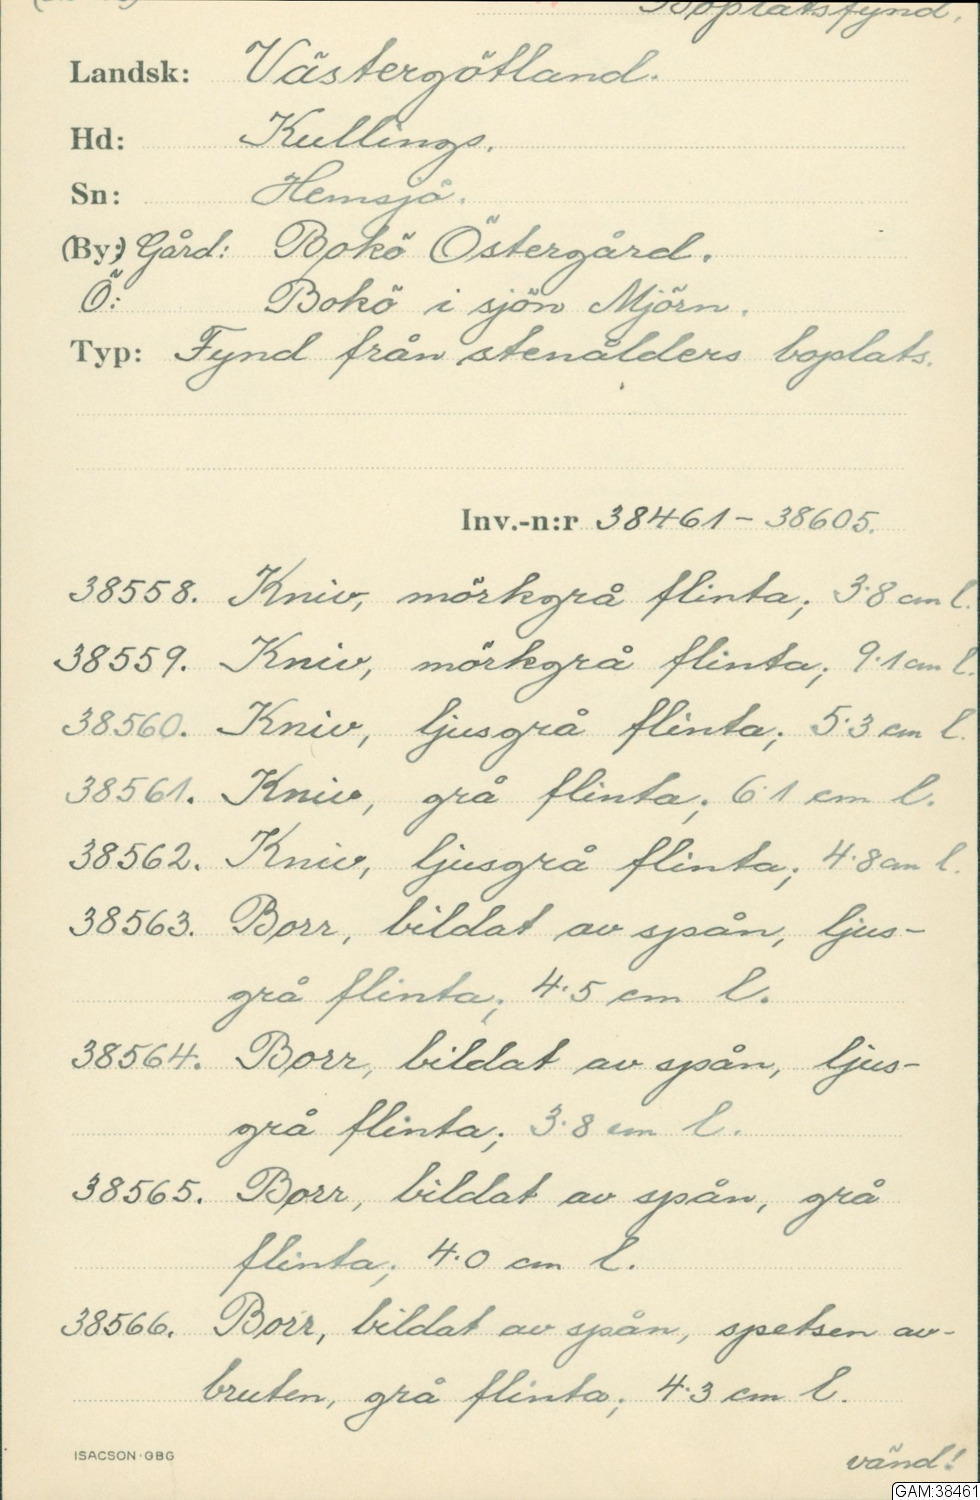 Boplatsfynd.
Landsk: Västergötland.
Hd: Kullings.
Sn: Hemsjö.
(By:) Gård: Bokö Östergård.
Ö: Bokö i sjön Mjörn.
Typ: Fynd från stenålders boplats.
Inv.-n:r 38461 - 38605.
38558. Kniv, mörkgrå flinta; 3.8 cm l.
38559. Kniv, mörkgrå flinta; 9.1 cm l.
38560. Kniv, ljusgrå flinta; 5.3 cm l.
38561. Kniv, grå flinta; 6.1 cm l.
38562. Kniv, ljusgrå flinta; 4.8 cm l.
38563. Borr, bildat av spån, ljus-
grå flinta; 4.5 cm l.
38564. Borr, bildat av spån, ljus-
grå flinta; 3.8 cm l.
38565. Borr, bildat av spån, grå
flinta; 4.0 cm l.
38566. Borr, bildat av spån, spetsen av-
bruten, grå flinta; 4.3 cm l.
ISACSON·GBG
vänd!
GAM:38461